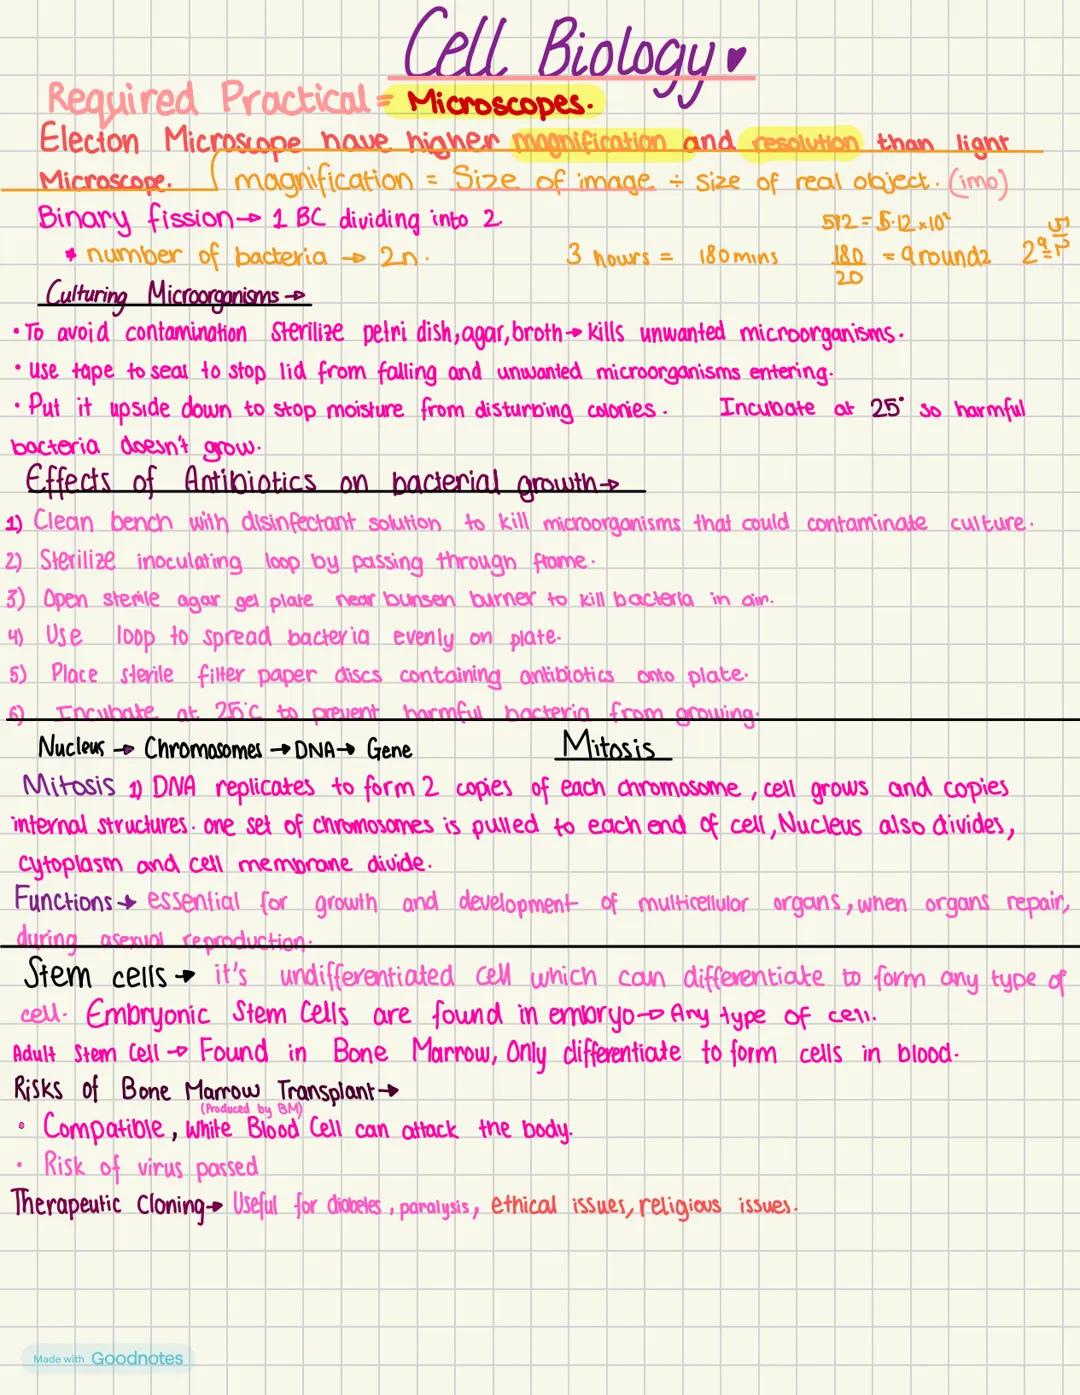 Cell Biology
Required Practical = Microscopes.
Electon Microscope have higher magnification and resolution than light
Microscope. magnification = Size of image ÷ size of real object. (imo)
Binary fission → 1 BC dividing into 2
512 = 5.12 × 10²
* number of bacteria → 2n.
3 hours = 180mins
180/20 = 9 rounds 2⁹ = 512
Culturing Microorganisms →
• To avoid contamination Sterilize petri dish, agar, broth → kills unwanted microorganisms.
• use tape to seal to stop lid from falling and unwanted microorganisms entering.
• Put it upside down to stop moisture from disturbing colonies. Incubate at 25° so harmful
bacteria doesn't grow.
Effects of Antibiotics on bacterial growth →
1) Clean bench with disinfectant solution to kill microorganisms that could contaminate culture.
2) Sterilize inoculating loop by passing through flame.
3) Open sterile agar gel plate near bunsen burner to kill bacteria in air.
4) Use loop to spread bacteria evenly on plate.
5) Place sterile filter paper discs containing antibiotics onto plate.
6) Incubate at 25°C to prevent harmful bacteria from growing.
Nucleus → Chromosomes → DNA → Gene
Mitosis
Mitosis 1) DNA replicates to form 2 copies of each chromosome, cell grows and copies
internal structures. one set of chromosomes is pulled to each end of cell, Nucleus also divides,
cytoplasm and cell membrane divide.
Functions → essential for growth and development of multicellular organs, when organs repair,
during asexual reproduction.
Stem cells → it's undifferentiated cell which can differentiate to form any type of
cell. Embryonic Stem Cells are found in embryo → Any type of cell.
Adult Stem Cell → Found in Bone Marrow, Only differentiate to form cells in blood.
Risks of Bone Marrow Transplant →
(Produced by BM)
• Compatible, White Blood Cell can attack the body.
• Risk of virus passed
Therapeutic Cloning → Useful for diabetes, paralysis, ethical issues, religious issues.
Made with Goodnotes